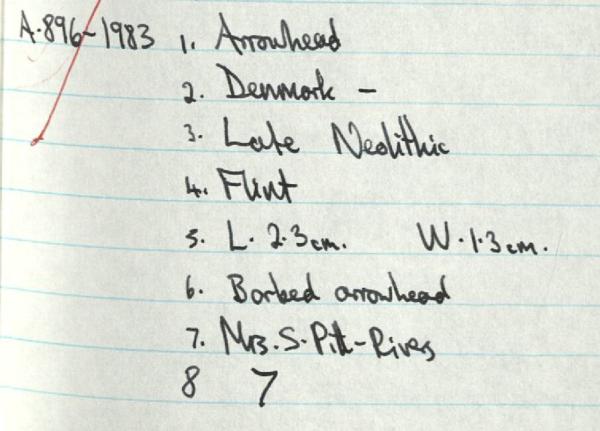 A.896-1983 1. Arrowhead
2. Denmark -
3. Late Neolithic
4. Flint
5. L. 2.3cm. W. 1.3cm.
6. Barbed arrowhead
7. Mrs. S. Pitt-Rivers
8 7